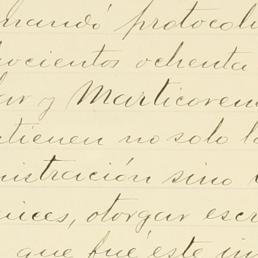 mandó protocoli
ocientos ochenta
lar y Marticoren
tienen no solo la
nistración sino
uices, otorgar escr
que fué éste in